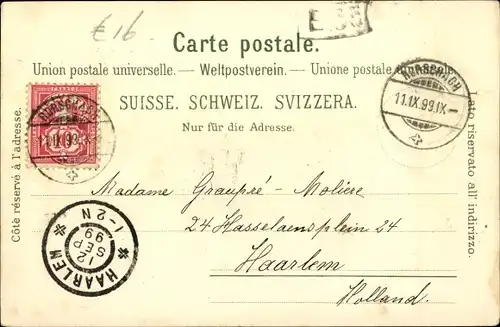 €16
Carte postale.
Union postale universelle. — Weltpostverein. — Unione postale
SUISSE. SCHWEIZ. SVIZZERA.
Nur für die Adresse.
Côté réservé à l'adresse.
Lato riservato all' indirizzo.
RORSCHACH
11.IX.99.IX—
RORSCHACH
11.IX.99.
10
Madame Graupré-Moliere
24 Hasselaensplein 24
Haarlem
Holland.
HAARLEM
12
SEP
99
1-2N